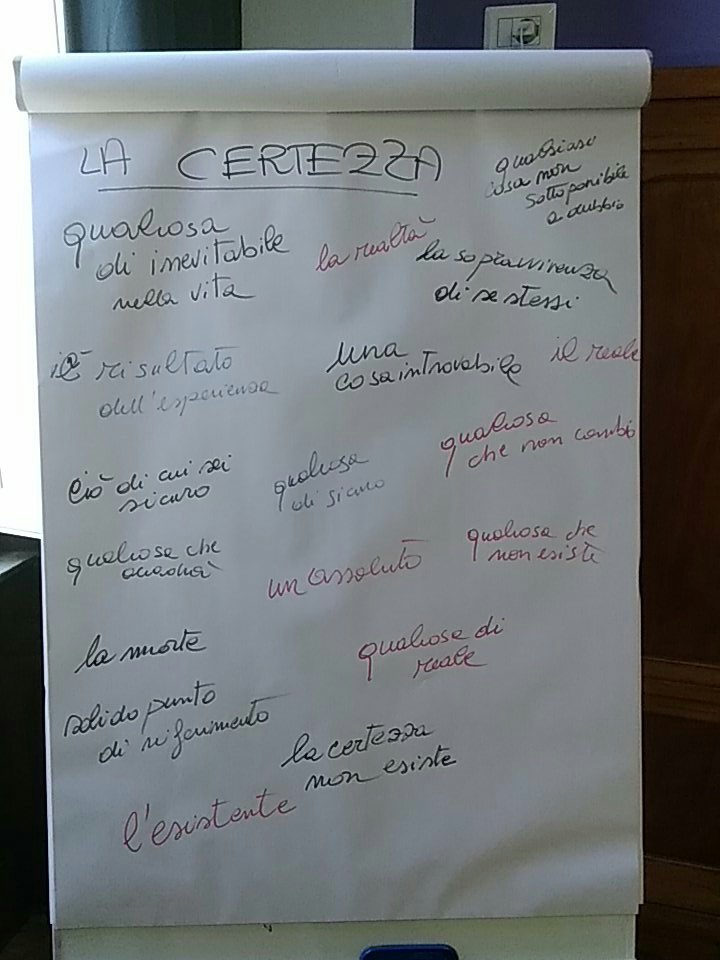 LA CERTEZZA
qualsiasi
cosa non
sottoponibile
a dubbio
qualcosa
di inevitabile
nella vita
la realtà
la sopravvivenza
di se stessi
il risultato
dell'esperienza
una
cosa introvabile
il reale
ciò di cui sei
sicuro
qualcosa
di sicuro
qualcosa
che non cambi
qualcosa che
accadrà
un assoluto
qualcosa che
non esiste
la morte
qualcosa di
reale
solido punto
di riferimento
la certezza
non esiste
l'esistente